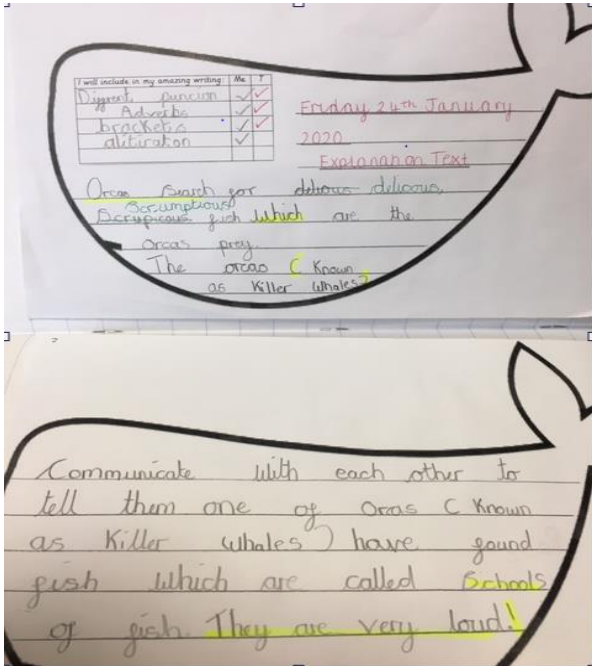 I will include in my amazing writing: Me T
Diggrent puncion
Adverbs
brackets
alitiration
Friday 24th January
2020
Explanation Text
Orcas search for delious delicous,
Scrumptious
Scrupicous fish which are the
orcas prey.
The orcas ( Known
as Killer Whales)
Communicate with each other to
tell them one of Orcas ( Known
as Killer Whales) have found
fish which are called Schools
of fish. They are very loud!